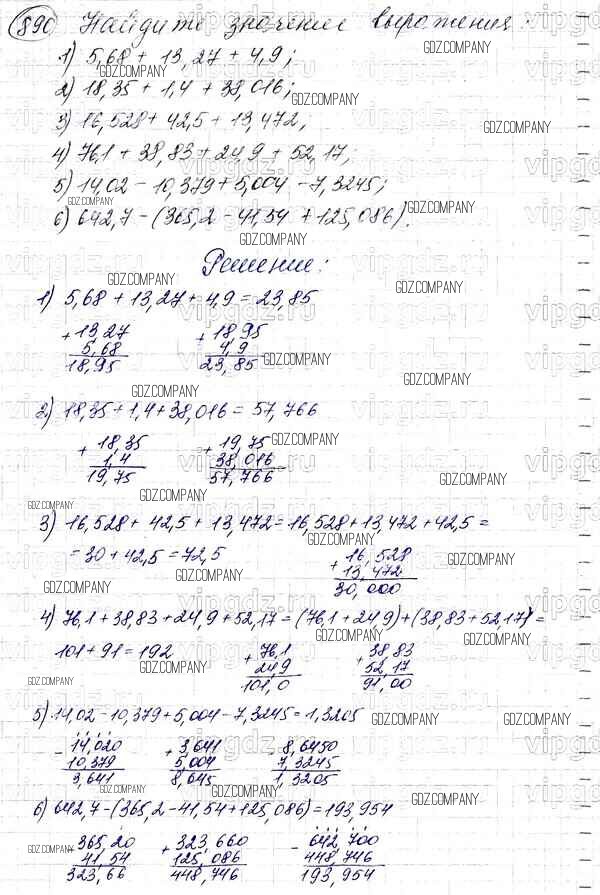 890 Найдите значение выражения:
1) 5,68 + 13,27 + 4,9;
2) 18,35 + 1,4 + 38,016;
3) 16,528 + 42,5 + 13,472;
4) 76,1 + 38,83 + 24,9 + 52,17;
5) 14,02 - 10,379 + 5,004 - 7,3245;
6) 642,7 - (365,2 - 41,54 + 125,086).
Решение:
1) 5,68 + 13,27 + 4,9 = 23,85
+ 13,27 + 18,95
5,68 4,9
18,95 23,85
2) 18,35 + 1,4 + 38,016 = 57,766
+ 18,35 + 19,75
1,4 38,016
19,75 57,766
3) 16,528 + 42,5 + 13,472 = 16,528 + 13,472 + 42,5 =
= 30 + 42,5 = 72,5
+ 16,528
13,472
30,000
4) 76,1 + 38,83 + 24,9 + 52,17 = (76,1 + 24,9) + (38,83 + 52,17) =
101 + 91 = 192
+ 76,1 + 38,83
24,9 52,17
101,0 91,00
5) 14,02 - 10,379 + 5,004 - 7,3245 = 1,3205
- 14,020 + 3,641 - 8,6450
10,379 5,004 7,3245
3,641 8,645 1,3205
6) 642,7 - (365,2 - 41,54 + 125,086) = 193,954
- 365,20 + 323,660 - 642,700
41,54 125,086 448,746
323,66 448,746 193,954
GDZ.COMPANY
vipgdz.ru